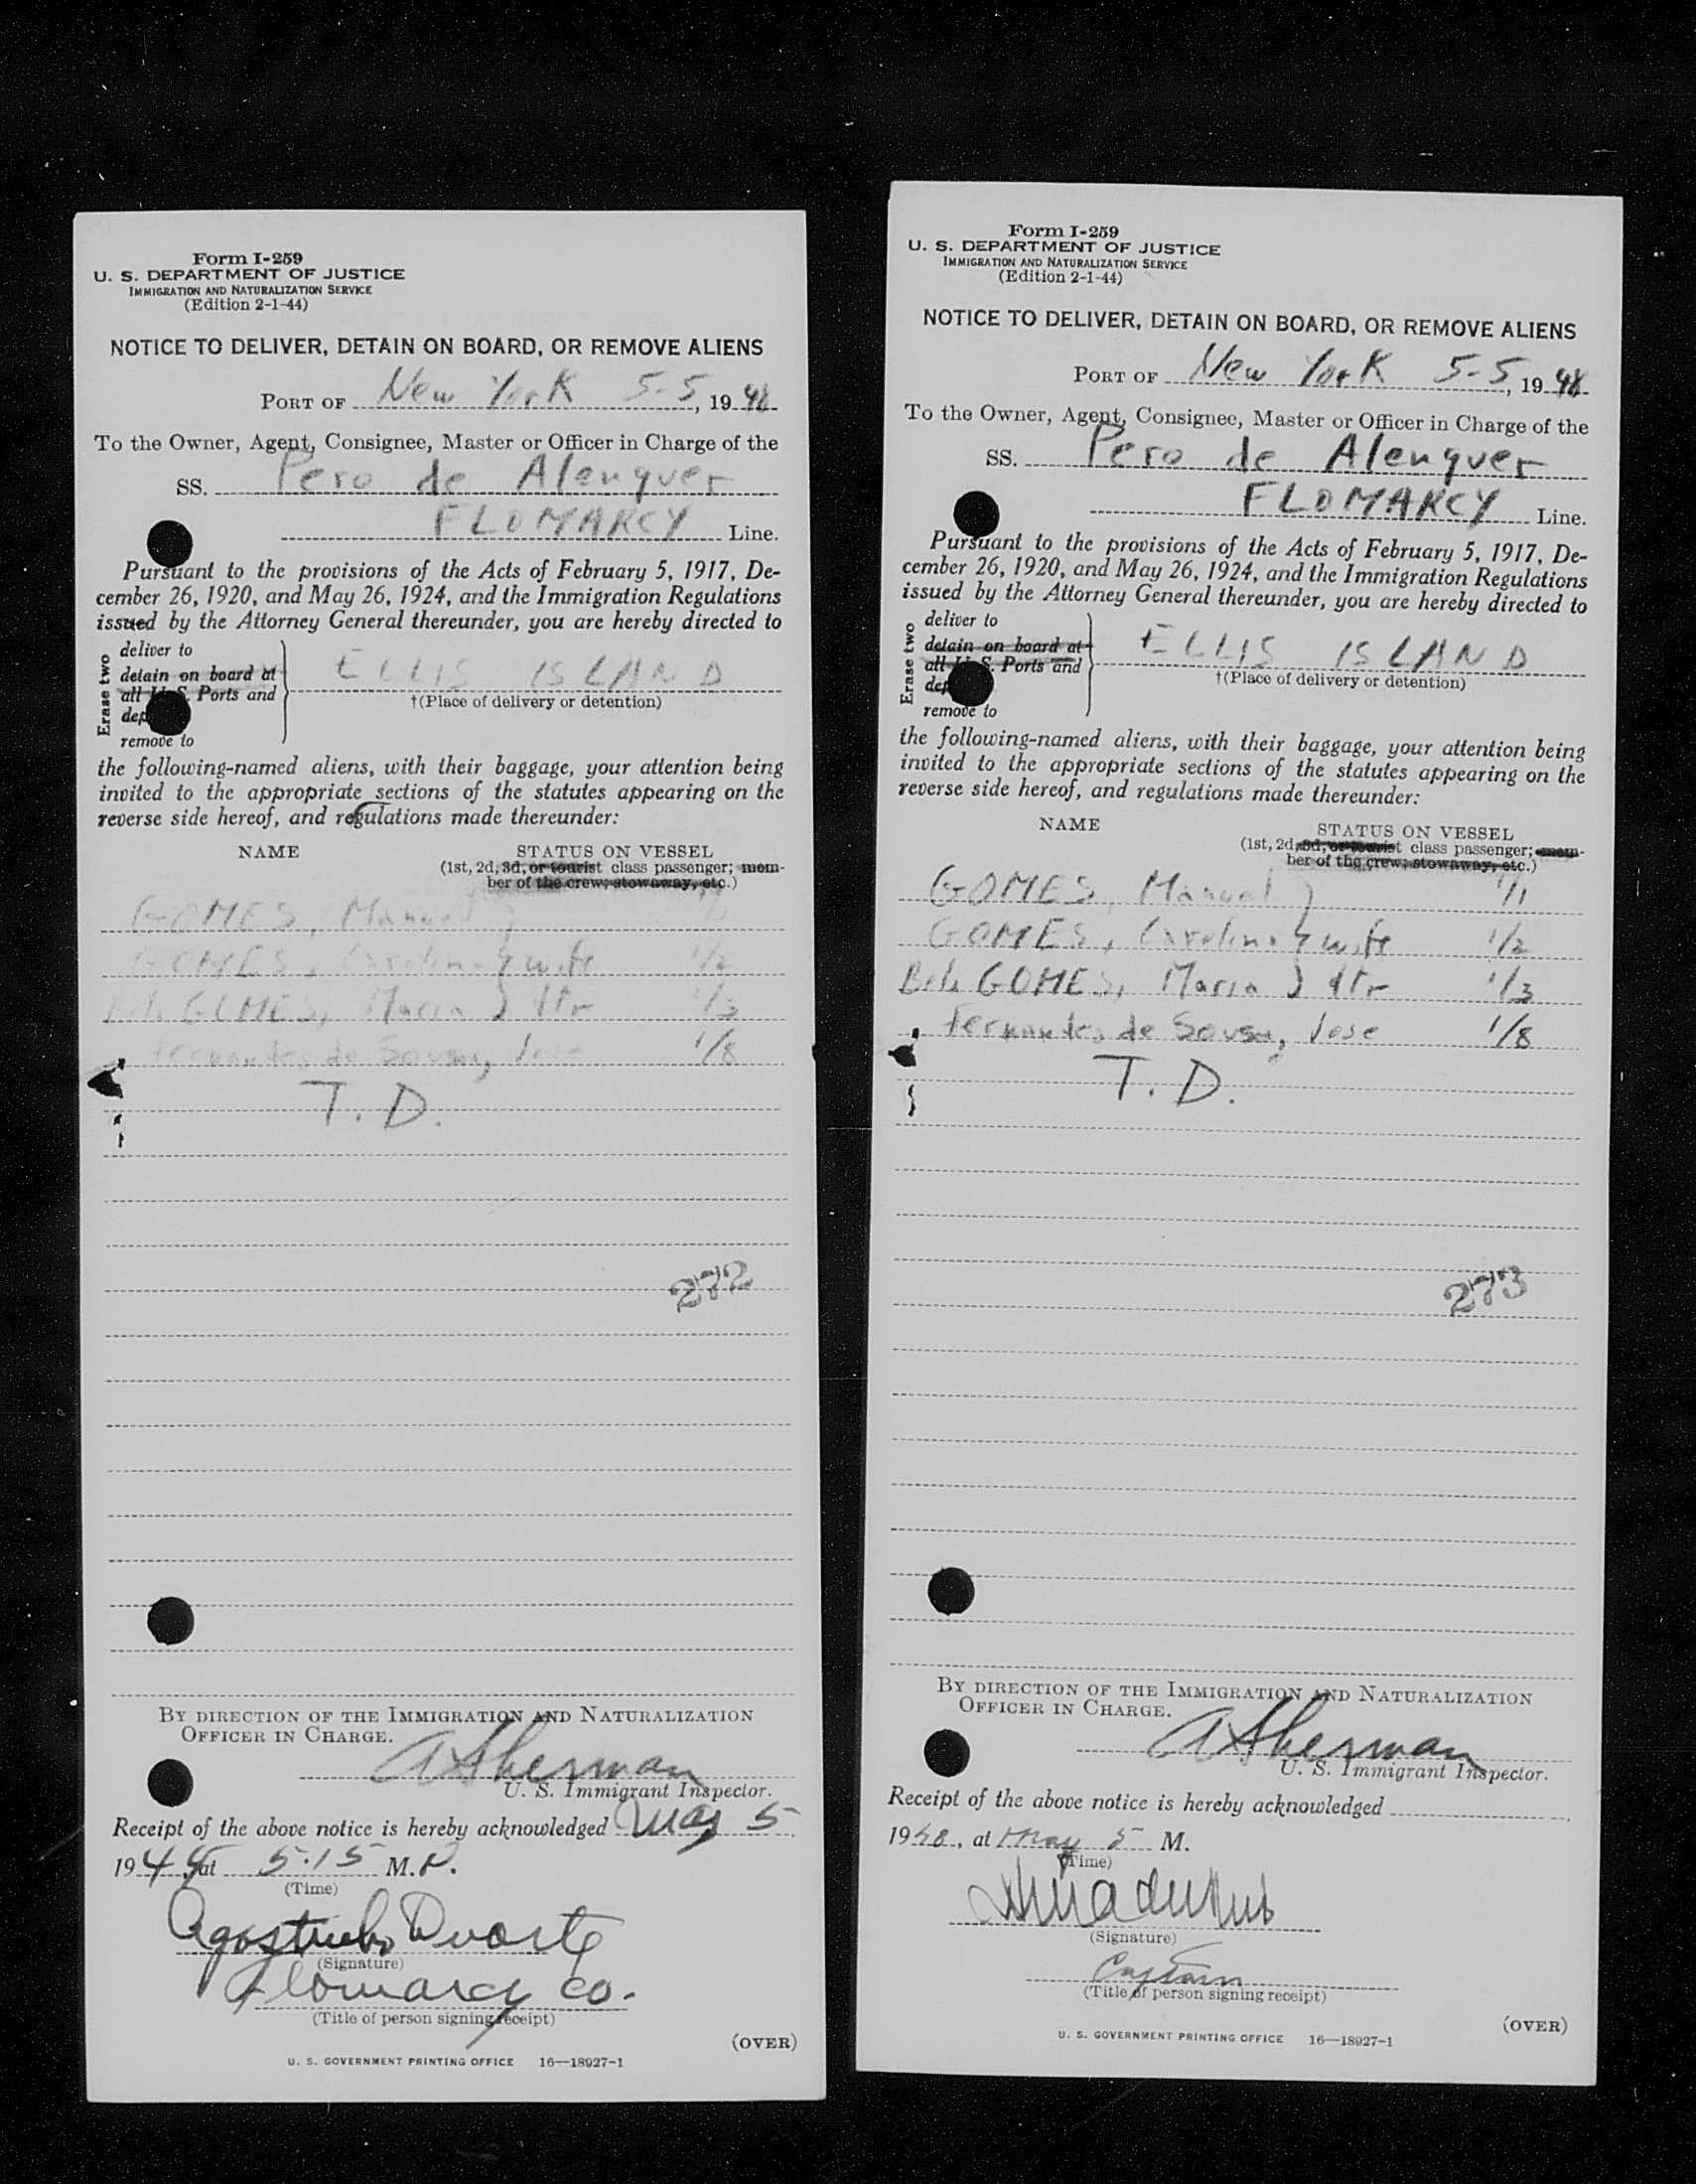 Form I-259
U. S. DEPARTMENT OF JUSTICE
IMMIGRATION AND NATURALIZATION SERVICE
(Edition 2-1-44)
NOTICE TO DELIVER, DETAIN ON BOARD, OR REMOVE ALIENS
PORT OF New York 5-5, 1948
To the Owner, Agent, Consignee, Master or Officer in Charge of the
SS. Pero de Alenquer
FLOMARCY Line.
Pursuant to the provisions of the Acts of February 5, 1917, De-
cember 26, 1920, and May 26, 1924, and the Immigration Regulations
issued by the Attorney General thereunder, you are hereby directed to
Erase two
deliver to
detain on board at
all U. S. Ports and
dep
remove to
ELLIS ISLAND
†(Place of delivery or detention)
the following-named aliens, with their baggage, your attention being
invited to the appropriate sections of the statutes appearing on the
reverse side hereof, and regulations made thereunder:
NAME STATUS ON VESSEL
(1st, 2d, 3d, or tourist class passenger; mem-
ber of the crew; stowaway, etc.)
GOMES, Manuel } 1/1
GOMES, Carolina } wife 1/2
GOMES, Maria } dtr 1/3
Fernandes de Sousa, Jose 1/8
T. D.
272
BY DIRECTION OF THE IMMIGRATION AND NATURALIZATION
OFFICER IN CHARGE.
A Sherman
U. S. Immigrant Inspector.
Receipt of the above notice is hereby acknowledged May 5
1948, at 5:15 M. P.
(Time)
Agostinho Duarte
(Signature)
Flomarcy Co.
(Title of person signing receipt)
(OVER)
U. S. GOVERNMENT PRINTING OFFICE 16—18927-1
Form I-259
U. S. DEPARTMENT OF JUSTICE
IMMIGRATION AND NATURALIZATION SERVICE
(Edition 2-1-44)
NOTICE TO DELIVER, DETAIN ON BOARD, OR REMOVE ALIENS
PORT OF New York 5-5, 1948
To the Owner, Agent, Consignee, Master or Officer in Charge of the
SS. Pero de Alenquer
FLOMARCY Line.
Pursuant to the provisions of the Acts of February 5, 1917, De-
cember 26, 1920, and May 26, 1924, and the Immigration Regulations
issued by the Attorney General thereunder, you are hereby directed to
Erase two
deliver to
detain on board at
all U. S. Ports and
dep
remove to
ELLIS ISLAND
†(Place of delivery or detention)
the following-named aliens, with their baggage, your attention being
invited to the appropriate sections of the statutes appearing on the
reverse side hereof, and regulations made thereunder:
NAME STATUS ON VESSEL
(1st, 2d, 3d, or tourist class passenger; mem-
ber of the crew; stowaway, etc.)
GOMES, Manuel } 1/1
GOMES, Carolina } wife 1/2
GOMES, Maria } dtr 1/3
Fernandes de Sousa, Jose 1/8
T. D.
273
BY DIRECTION OF THE IMMIGRATION AND NATURALIZATION
OFFICER IN CHARGE.
A Sherman
U. S. Immigrant Inspector.
Receipt of the above notice is hereby acknowledged
1948, at May 5 M.
(Time)
(Signature)
Captain
(Title of person signing receipt)
(OVER)
U. S. GOVERNMENT PRINTING OFFICE 16—18927-1